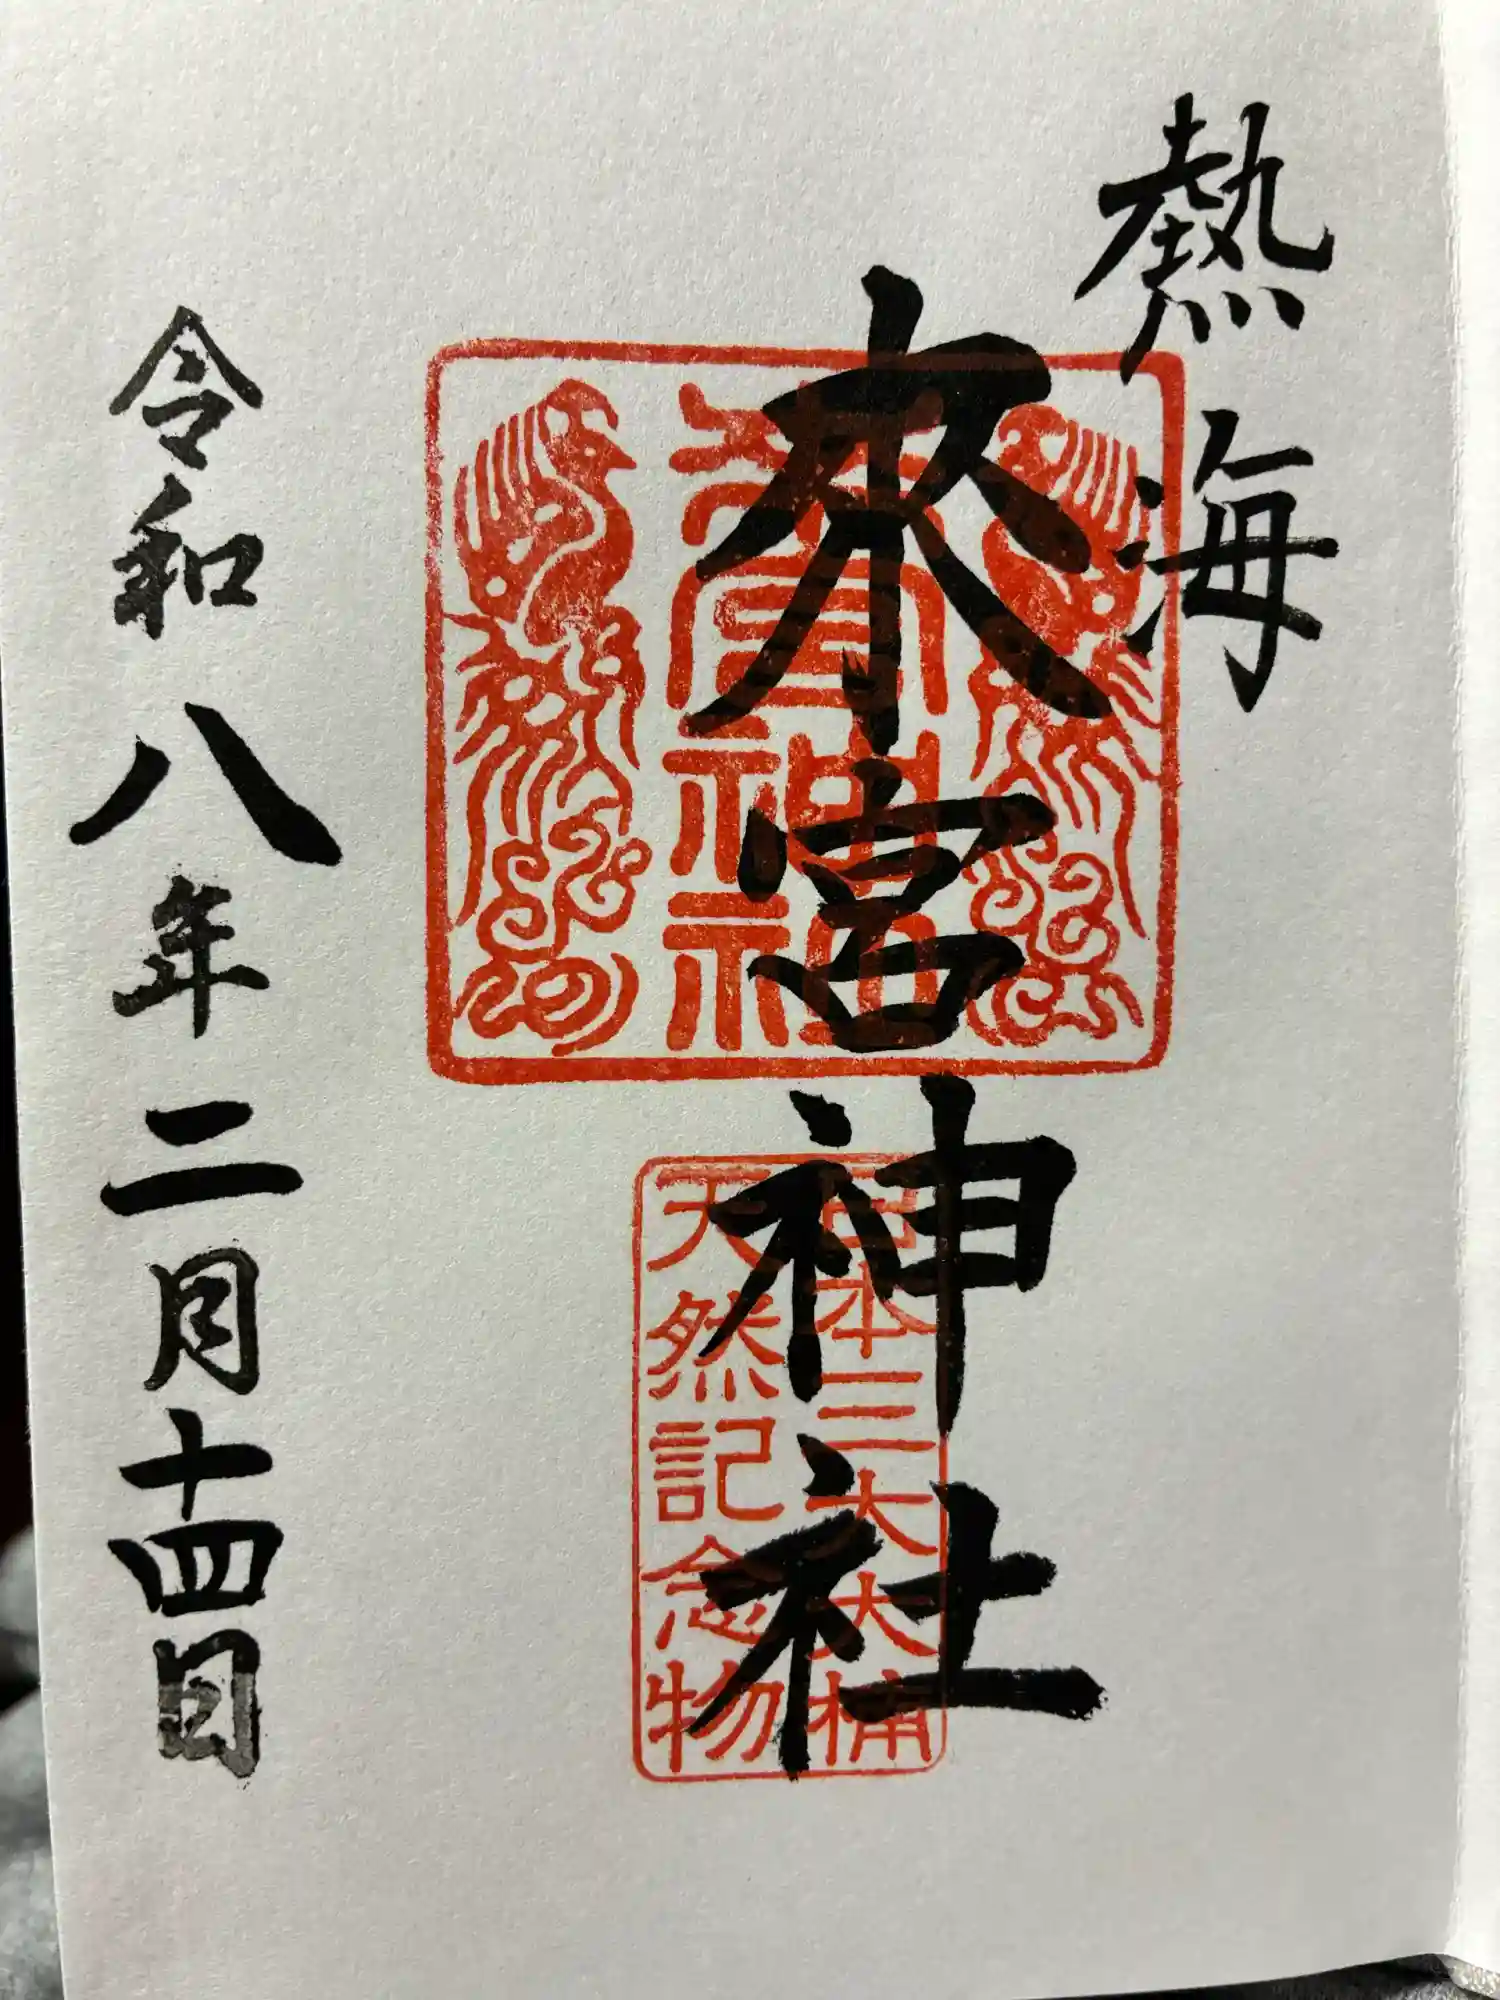 熱海
來宮神社
日本三大大楠
天然記念物
令和八年二月十四日